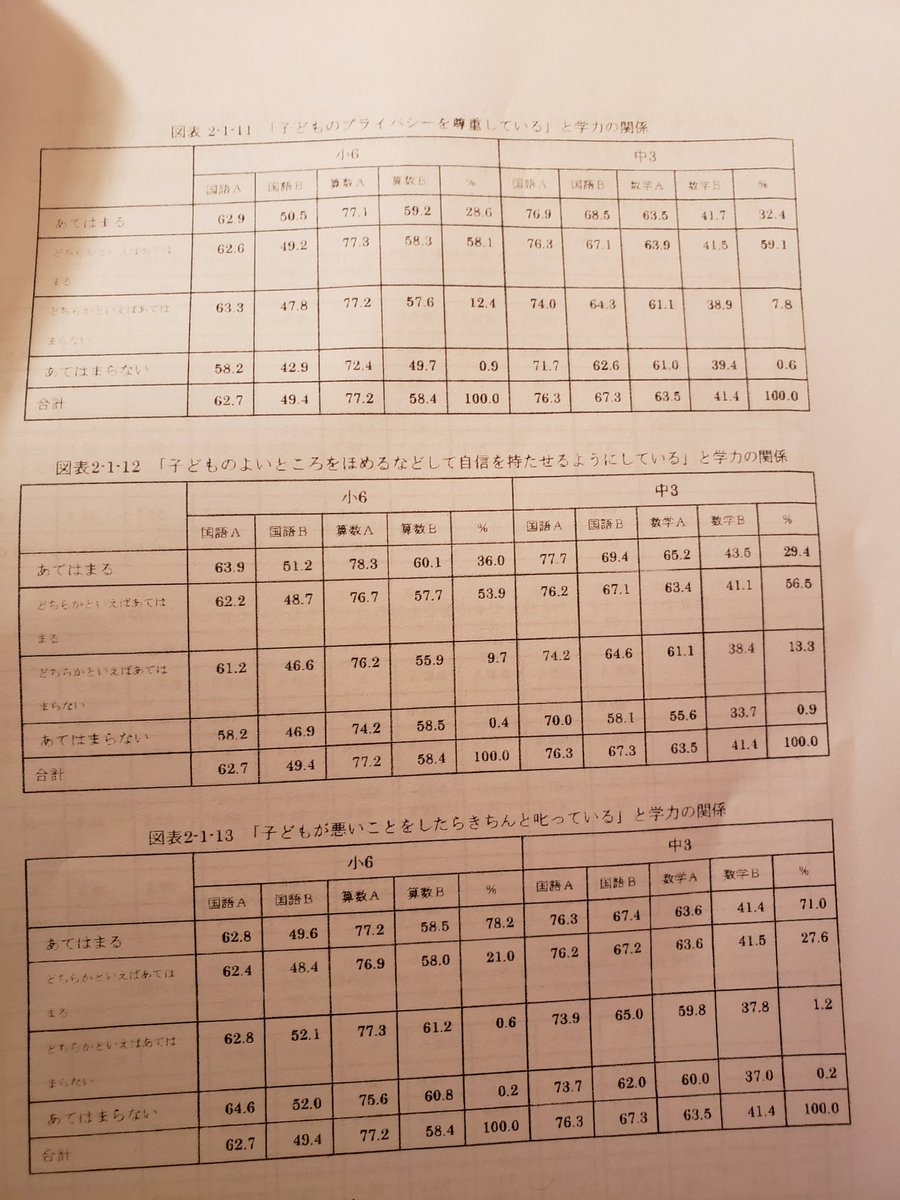 図表 2-1-11 「子どものプライバシーを尊重している」と学力の関係
小6 中3
国語A 国語B 算数A 算数B % 国語A 国語B 数学A 数学B %
あてはまる 62.9 50.5 77.1 59.2 28.6 76.9 68.5 63.5 41.7 32.4
どちらかといえばあては 62.6 49.2 77.3 58.3 58.1 76.3 67.1 63.9 41.5 59.1
まる
どちらかといえばあては 63.3 47.8 77.2 57.6 12.4 74.0 64.3 61.1 38.9 7.8
まらない
あてはまらない 58.2 42.9 72.4 49.7 0.9 71.7 62.6 61.0 39.4 0.6
合計 62.7 49.4 77.2 58.4 100.0 76.3 67.3 63.5 41.4 100.0
図表2-1-12 「子どものよいところをほめるなどして自信を持たせるようにしている」と学力の関係
小6 中3
国語A 国語B 算数A 算数B % 国語A 国語B 数学A 数学B %
あてはまる 63.9 51.2 78.3 60.1 36.0 77.7 69.4 65.2 43.5 29.4
どちらかといえばあては 62.2 48.7 76.7 57.7 53.9 76.2 67.1 63.4 41.1 56.5
まる
どちらかといえばあては 61.2 46.6 76.2 55.9 9.7 74.2 64.6 61.1 38.4 13.3
まらない
あてはまらない 58.2 46.9 74.2 58.5 0.4 70.0 58.1 55.6 33.7 0.9
合計 62.7 49.4 77.2 58.4 100.0 76.3 67.3 63.5 41.4 100.0
図表2-1-13 「子どもが悪いことをしたらきちんと叱っている」と学力の関係
小6 中3
国語A 国語B 算数A 算数B % 国語A 国語B 数学A 数学B %
あてはまる 62.8 49.6 77.2 58.5 78.2 76.3 67.4 63.6 41.4 71.0
どちらかといえばあては 62.4 48.4 76.9 58.0 21.0 76.2 67.2 63.6 41.5 27.6
まる
どちらかといえばあては 62.8 52.1 77.3 61.2 0.6 73.9 65.0 59.8 37.8 1.2
まらない
あてはまらない 64.6 52.0 75.6 60.8 0.2 73.7 62.0 60.0 37.0 0.2
合計 62.7 49.4 77.2 58.4 100.0 76.3 67.3 63.5 41.4 100.0